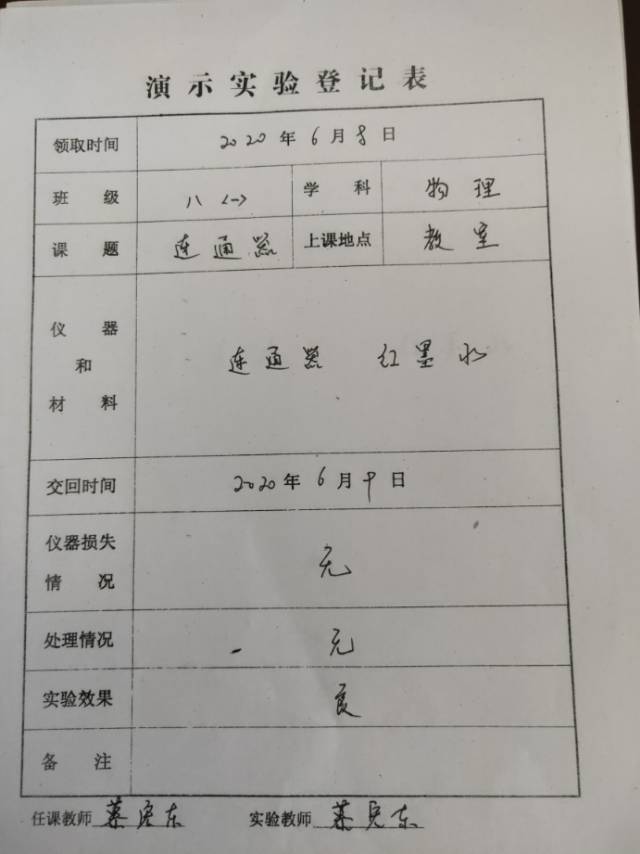 演示实验登记表
领取时间 2020年6月8日
班级 八<一> 学科 物理
课题 连通器 上课地点 教室
仪器和材料 连通器 红墨水
交回时间 2020年6月9日
仪器损失情况 无
处理情况 无
实验效果 良
备注
任课教师 东 实验教师 东